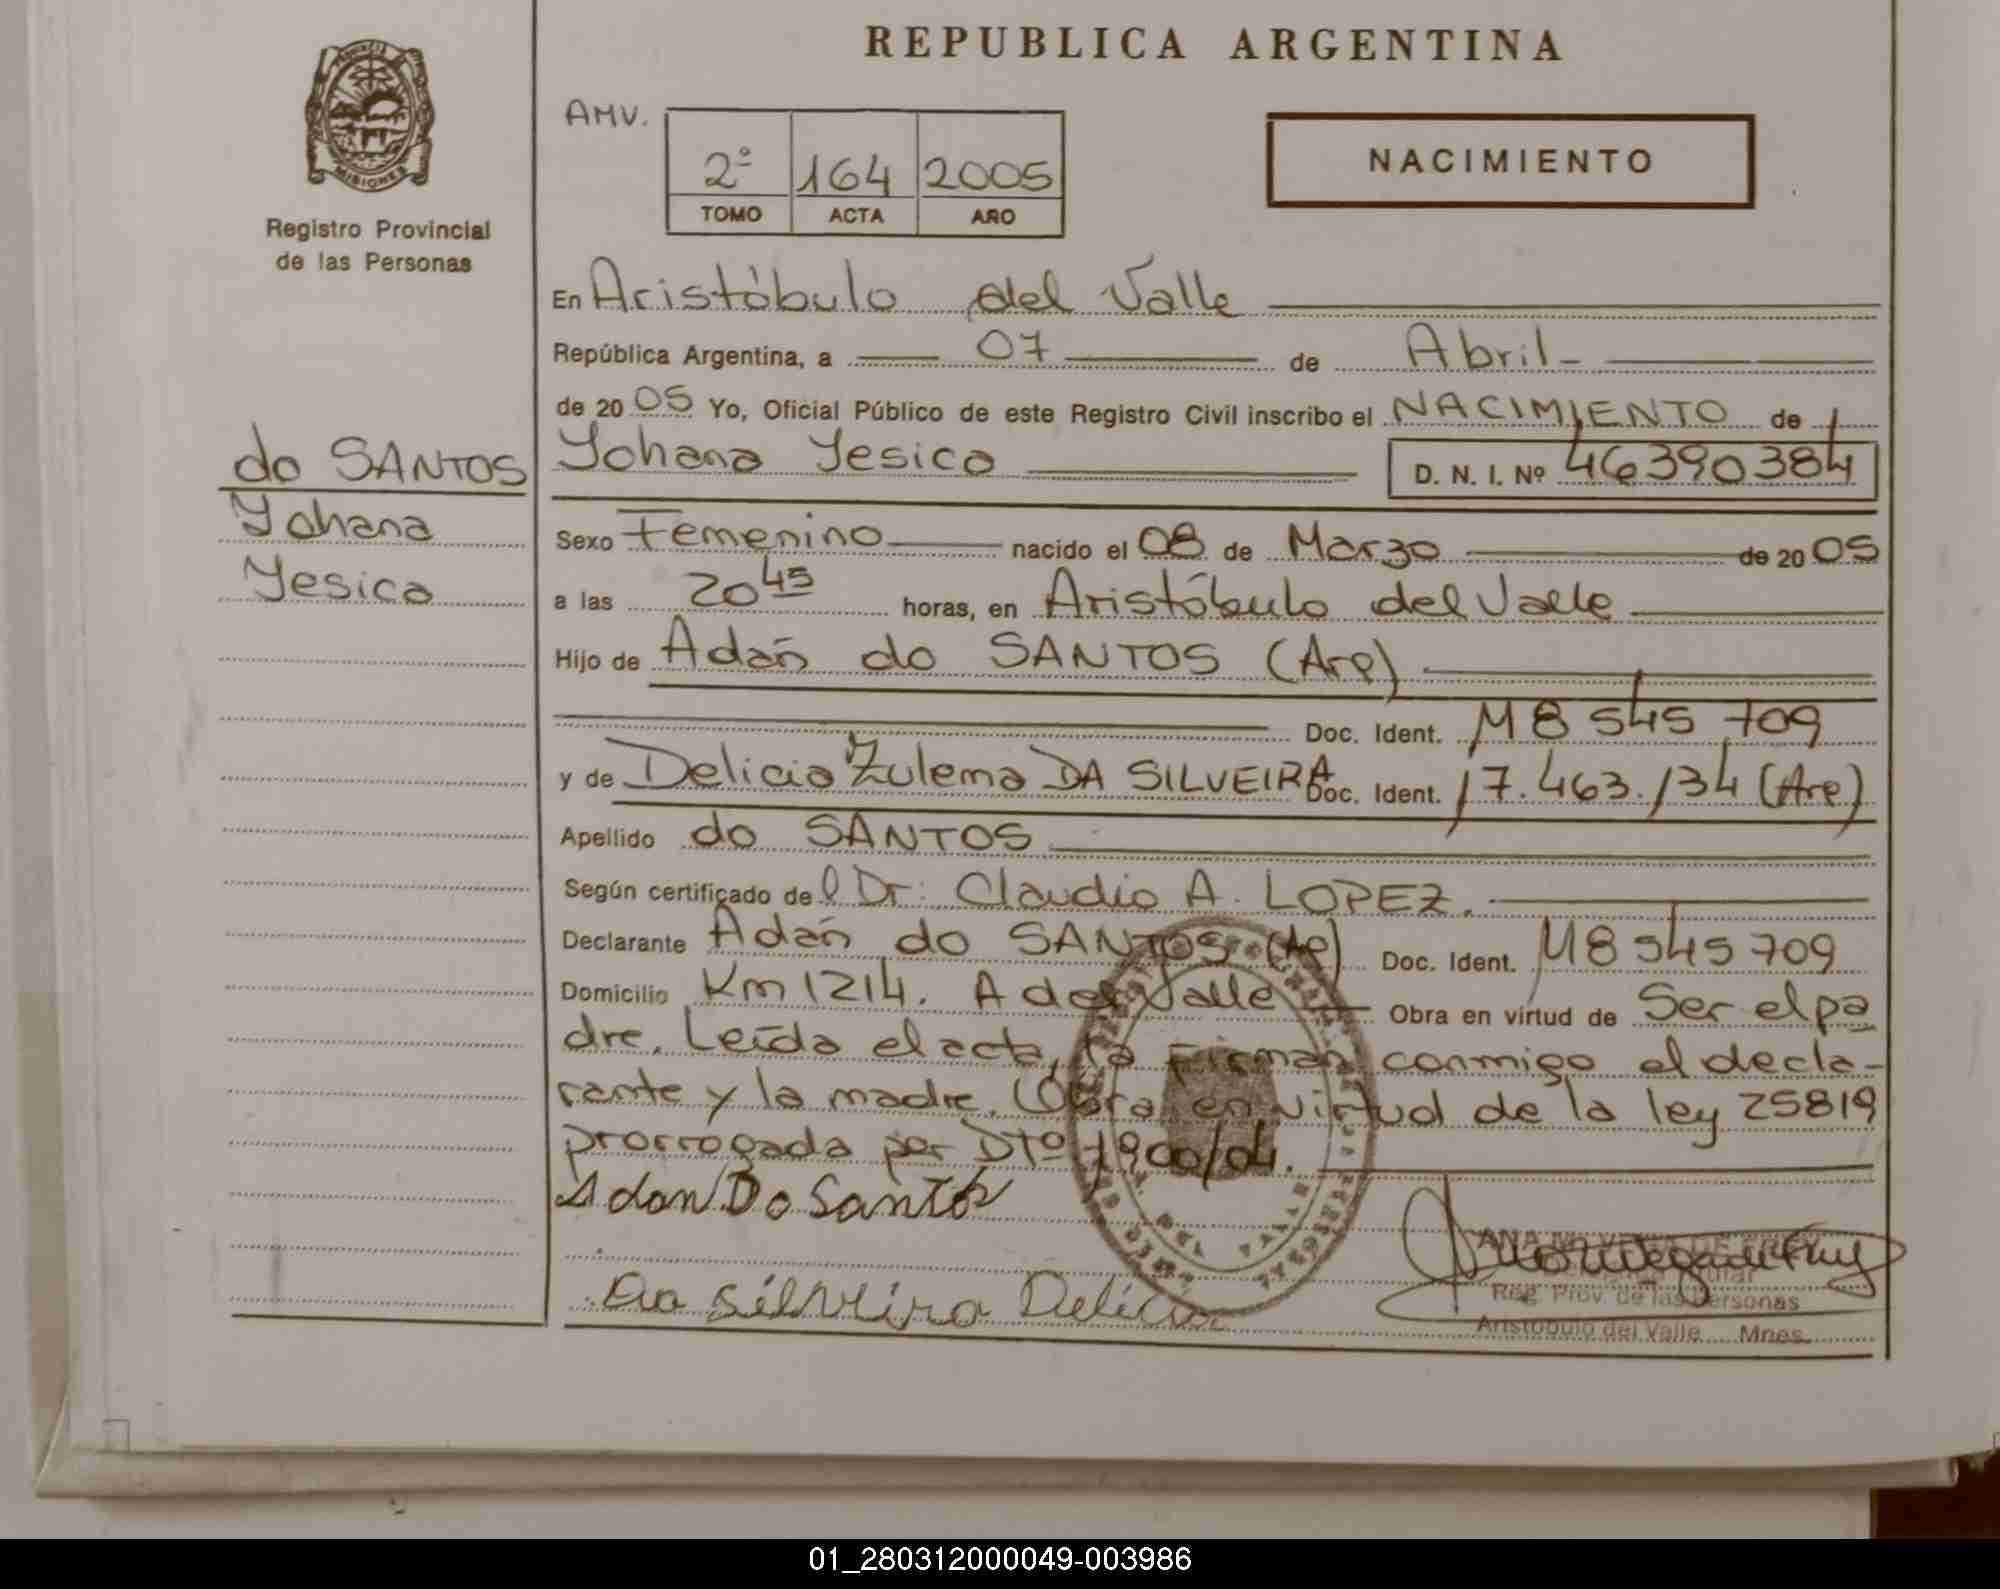 REPUBLICA ARGENTINA
PROVINCIA
MISIONES
Registro Provincial
de las Personas
AMV.
2º 164 2005
TOMO ACTA AÑO
NACIMIENTO
En Aristóbulo del Valle
República Argentina, a 07 de Abril
de 2005 Yo, Oficial Público de este Registro Civil inscribo el NACIMIENTO de
do SANTOS
Yohana
Yesica
Yohana Yesica D. N. I. Nº 46390384
Sexo Femenino nacido el 08 de Marzo de 2005
a las 20 45 horas, en Aristóbulo del Valle
Hijo de Adán do SANTOS (Arg)
Doc. Ident. M8 545 709
y de Delicia Zulema DA SILVEIRA Doc. Ident. 17.463.134 (Arg)
Apellido do SANTOS
Según certificado de l Dr: Claudio A. LOPEZ.
Declarante Adán do SANTOS (Ag) Doc. Ident. M8 545 709
Domicilio Km 1214. A del Valle Obra en virtud de Ser el pa
dre. Leída el acta, la Firman conmigo el decla-
rante y la madre. Obra en virtud de la ley 25819
prorrogada por Dto 1900/04.
Adan Do Santos
Da silveira Delicia
Reg. Prov. de las Personas
Aristobulo del Valle Mnes.
01_280312000049-003986